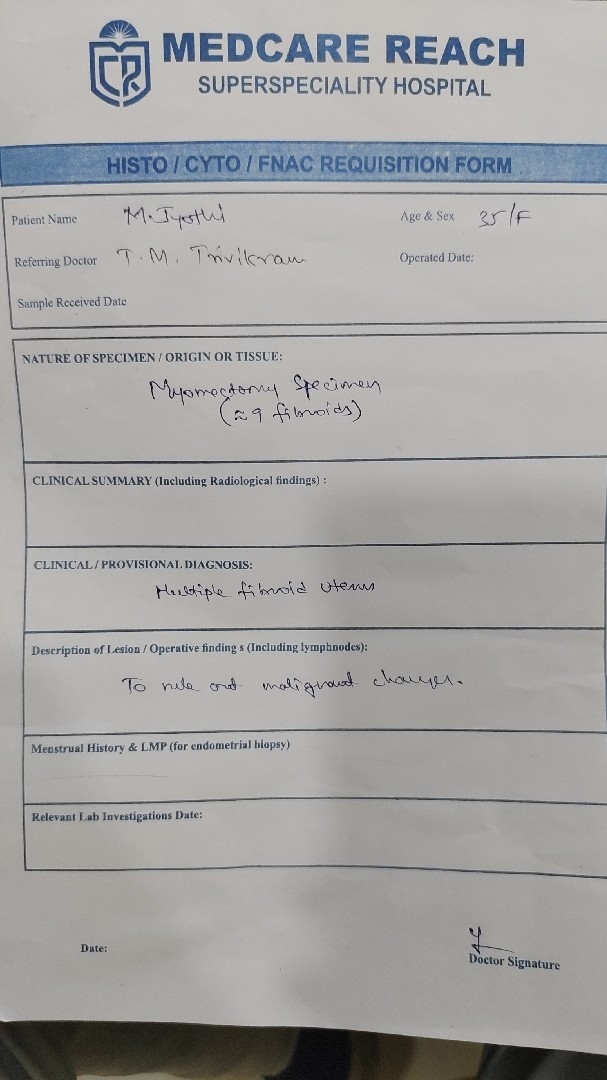 MEDCARE REACH
SUPERSPECIALITY HOSPITAL
HISTO / CYTO / FNAC REQUISITION FORM
Patient Name M. Jyothi Age & Sex 35/F
Referring Doctor T. M. Trivikram Operated Date:
Sample Received Date
NATURE OF SPECIMEN / ORIGIN OR TISSUE:
Myomectomy Specimen
(≈ 9 fibroids)
CLINICAL SUMMARY (Including Radiological findings) :
CLINICAL / PROVISIONAL DIAGNOSIS:
Multiple fibroid uterus
Description of Lesion / Operative finding s (Including lymphnodes):
To rule out malignant changes.
Menstrual History & LMP (for endometrial biopsy)
Relevant Lab Investigations Date:
Date:
Doctor Signature